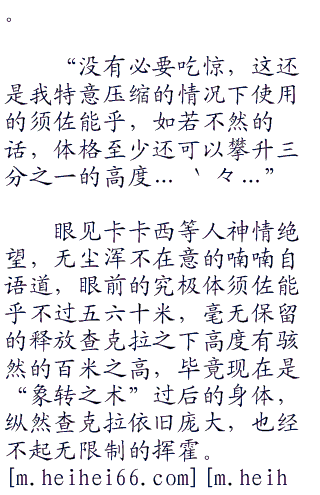 。
“没有必要吃惊，这还
是我特意压缩的情况下使用
的须佐能乎，如若不然的
话，体格至少还可以攀升三
分之一的高度…‵々…”
眼见卡卡西等人神情绝
望，无尘浑不在意的喃喃自
语道，眼前的究极体须佐能
乎不过五六十米，毫无保留
的释放查克拉之下高度有骇
然的百米之高，毕竟现在是
“象转之术”过后的身体，
纵然查克拉依旧庞大，也经
不起无限制的挥霍。
[m.heihei66.com][m.heih